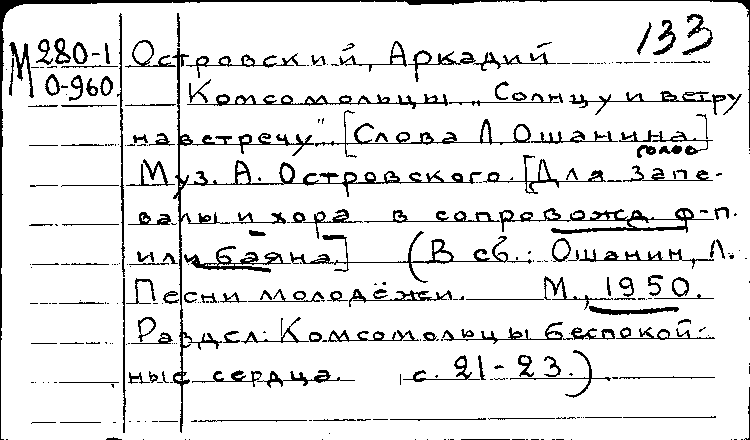 133
М 280-1
О-960
Островский, Аркадий
Комсомольцы „Солнцу и ветру
навстречу". [Слова Л. Ошанина.]
голос
Муз. А. Островского. [Для запе-
валы и хора в сопровожд. ф-п.
или баяна.] (В сб.: Ошанин, Л.
Песни молодёжи. М., 1950.
Раздел: Комсомольцы беспокой-
ные сердца. с. 21-23.)